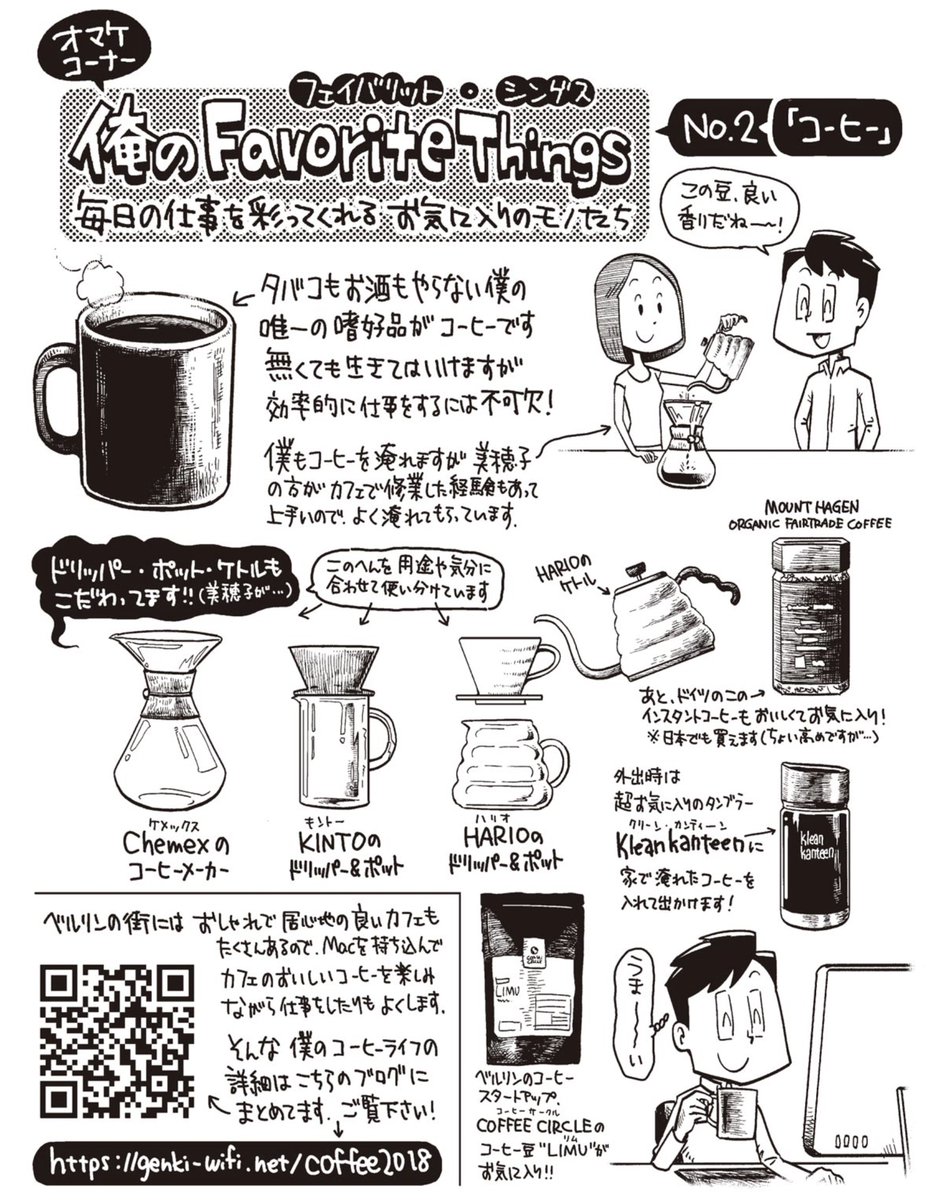 オマケ
コーナー
フェイバリット・シングス
俺のFavorite Things
毎日の仕事を彩ってくれるお気に入りのモノたち
No.2「コーヒー」
この豆、良い
香りだねー〜!
タバコもお酒もやらない僕の
唯一の嗜好品がコーヒーです
無くても生きてはいけますが
効率的に仕事をするには不可欠!
僕もコーヒーを淹れますが美穂子
の方がカフェで修業した経験もあって
上手いので、よく淹れてもらっています.
MOUNT HAGEN
ORGANIC FAIRTRADE COFFEE
ドリッパー・ポット・ケトルも
こだわってます!!(美穂子が…)
このへんを用途や気分に
合わせて使い分けています
HARIOの
ケトル
あと、ドイツのこの
インスタントコーヒーもおいしくてお気に入り!
※日本でも買えます(ちょい高めですが…)
ケメックス
Chemexの
コーヒーメーカー
キントー
KINTOの
ドリッパー&ポット
ハリオ
HARIOの
ドリッパー&ポット
外出時は
超お気に入りのタンブラー
クリーン・カンティーン
Klean kanteenに
家で淹れたコーヒーを
入れて出かけます!
klean
kanteen
ベルリンの街にはおしゃれで居心地の良いカフェも
たくさんあるので、Macを持ち込んで
カフェのおいしいコーヒーを楽しみ
ながら仕事をしたりもよくします.
そんな僕のコーヒーライフの
詳細はこちらのブログに
まとめてます.ご覧下さい!
https://genki-wifi.net/coffee2018
LIMU
ベルリンのコーヒー
スタートアップ.
コーヒーサークル
COFFEE CIRCLEの
リム
コーヒー豆"LIMU"が
お気に入り!!
うま〜〜い